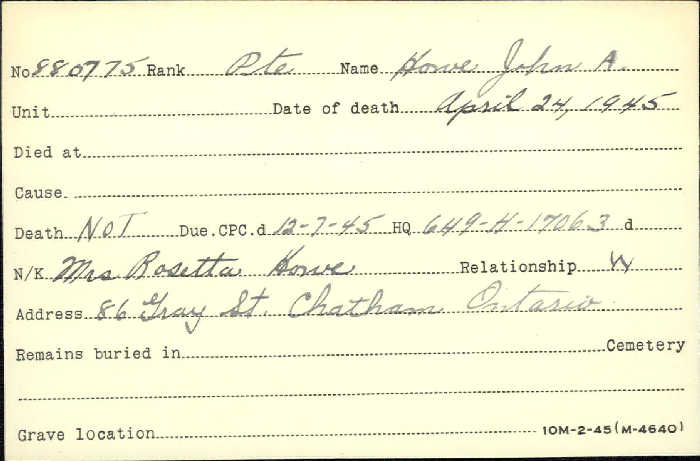 No 880775 Rank Pte Name Howe John A.
Unit Date of death April 24, 1945
Died at
Cause.
Death NOT Due.CPC.d 12-7-45 HQ 649-H-17063 d
N/K Mrs Rosetta Howe Relationship W
Address 86 Gray St. Chatham Ontario.
Remains buried in Cemetery
Grave location 10M-2-45(M-4640)